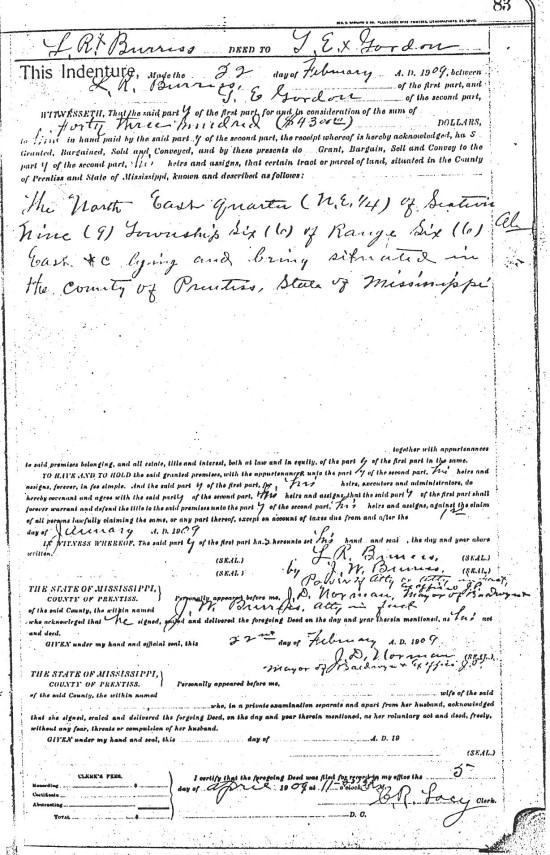 83
L. R. Burriss DEED TO T. E. Gordon
This Indenture, Made the 22 day of February A. D. 1909, between
L. R. Burriss, of the first part, and
T. E Gordon of the second part,
WITNESSETH, That the said part y of the first part, for and in consideration of the sum of
Forty three hundred ($4300.00) DOLLARS,
to him in hand paid by the said part y of the second part, the receipt whereof is hereby acknowledged, ha s
Granted, Bargained, Sold and Conveyed, and by these presents do Grant, Bargain, Sell and Convey to the
part y of the second part, his heirs and assigns, that certain tract or parcel of land, situated in the County
of Prentiss and State of Mississippi, known and described as follows:
The North East quarter (N.E.1/4) of Section
Nine (9) Township Six (6) of Range Six (6)
East &c lying and being situated in
the County of Prentiss, State of Mississippi
together with appurtenances
to said premises belonging, and all estate, title and interest, both at law and in equity, of the part y of the first part in the same.
TO HAVE AND TO HOLD the said granted premises, with the appurtenances unto the part y of the second part, his heirs and
assigns, forever, in fee simple. And the said part y of the first part, for his heirs, executors and administrators, do
hereby covenant and agree with the said party of the second part, his heirs and assigns, that the said part y of the first part shall
forever warrant and defend the title to the said premises unto the part y of the second part, his heirs and assigns, against the claim
of all persons lawfully claiming the same, or any part thereof, except on account of taxes due from and after the 1st
day of January A. D. 1909
IN WITNESS WHEREOF, The said part y of first part ha s hereunto set his hand and seal, the day and year above
written.
L. R. Burriss, (SEAL)
(SEAL) by J. W. Burriss, (SEAL)
(SEAL) Power of Atty or Atty in fact,
THE STATE OF MISSISSIPPI,
COUNTY OF PRENTISS.
Personally appeared before me, J. D. Norman, Mayor of Baldwyn & Exofficio J.P.
of the said County, the within named J. W. Burriss, Atty in fact
who acknowledged that he signed, sealed and delivered the forgoing Deed on the day and year therein mentioned, as his act
and deed.
GIVEN under my hand and official seal, this 22nd day of February A. D. 1909.
J. D. Norman (SEAL)
Mayor of Baldwyn & Exofficio J.P.
THE STATE OF MISSISSIPPI,
COUNTY OF PRENTISS.
Personally appeared before me,
of the said County, the within named wife of the said
who, in a private examination separate and apart from her husband, acknowledged
that she signed, sealed and delivered the forgoing Deed, on the day and year therein mentioned, as her voluntary act and deed, freely,
without any fear, threats or compulsion of her husband.
GIVEN under my hand and seal, this day of A. D. 19
(SEAL)
CLERK'S FEES.
Recording $
Certificate
Abstracting
TOTAL $
I certify that the foregoing Deed was filed for record in my office the 5
day of April 1909 at 11 o'clock
C. R. Lacy Clerk.
D. C.